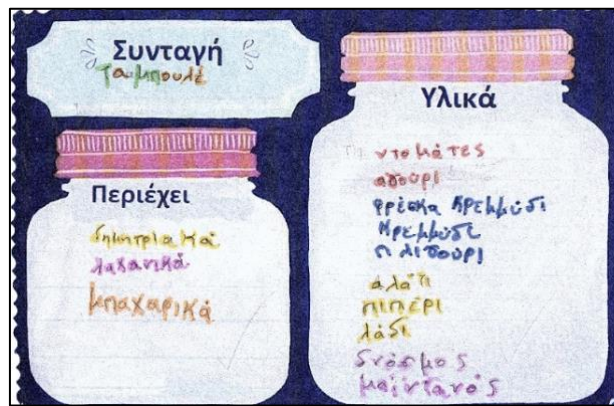 Συνταγή
ταμπουλέ
Περιέχει
δημητριακά
λαχανικά
μπαχαρικά
Υλικά
ντομάτες
αγούρι
φρέσκα κρεμμύδι
κρεμμύδι
πλιγούρι
αλάτι
πιπέρι
λάδι
δυόσμος
μαϊντανός